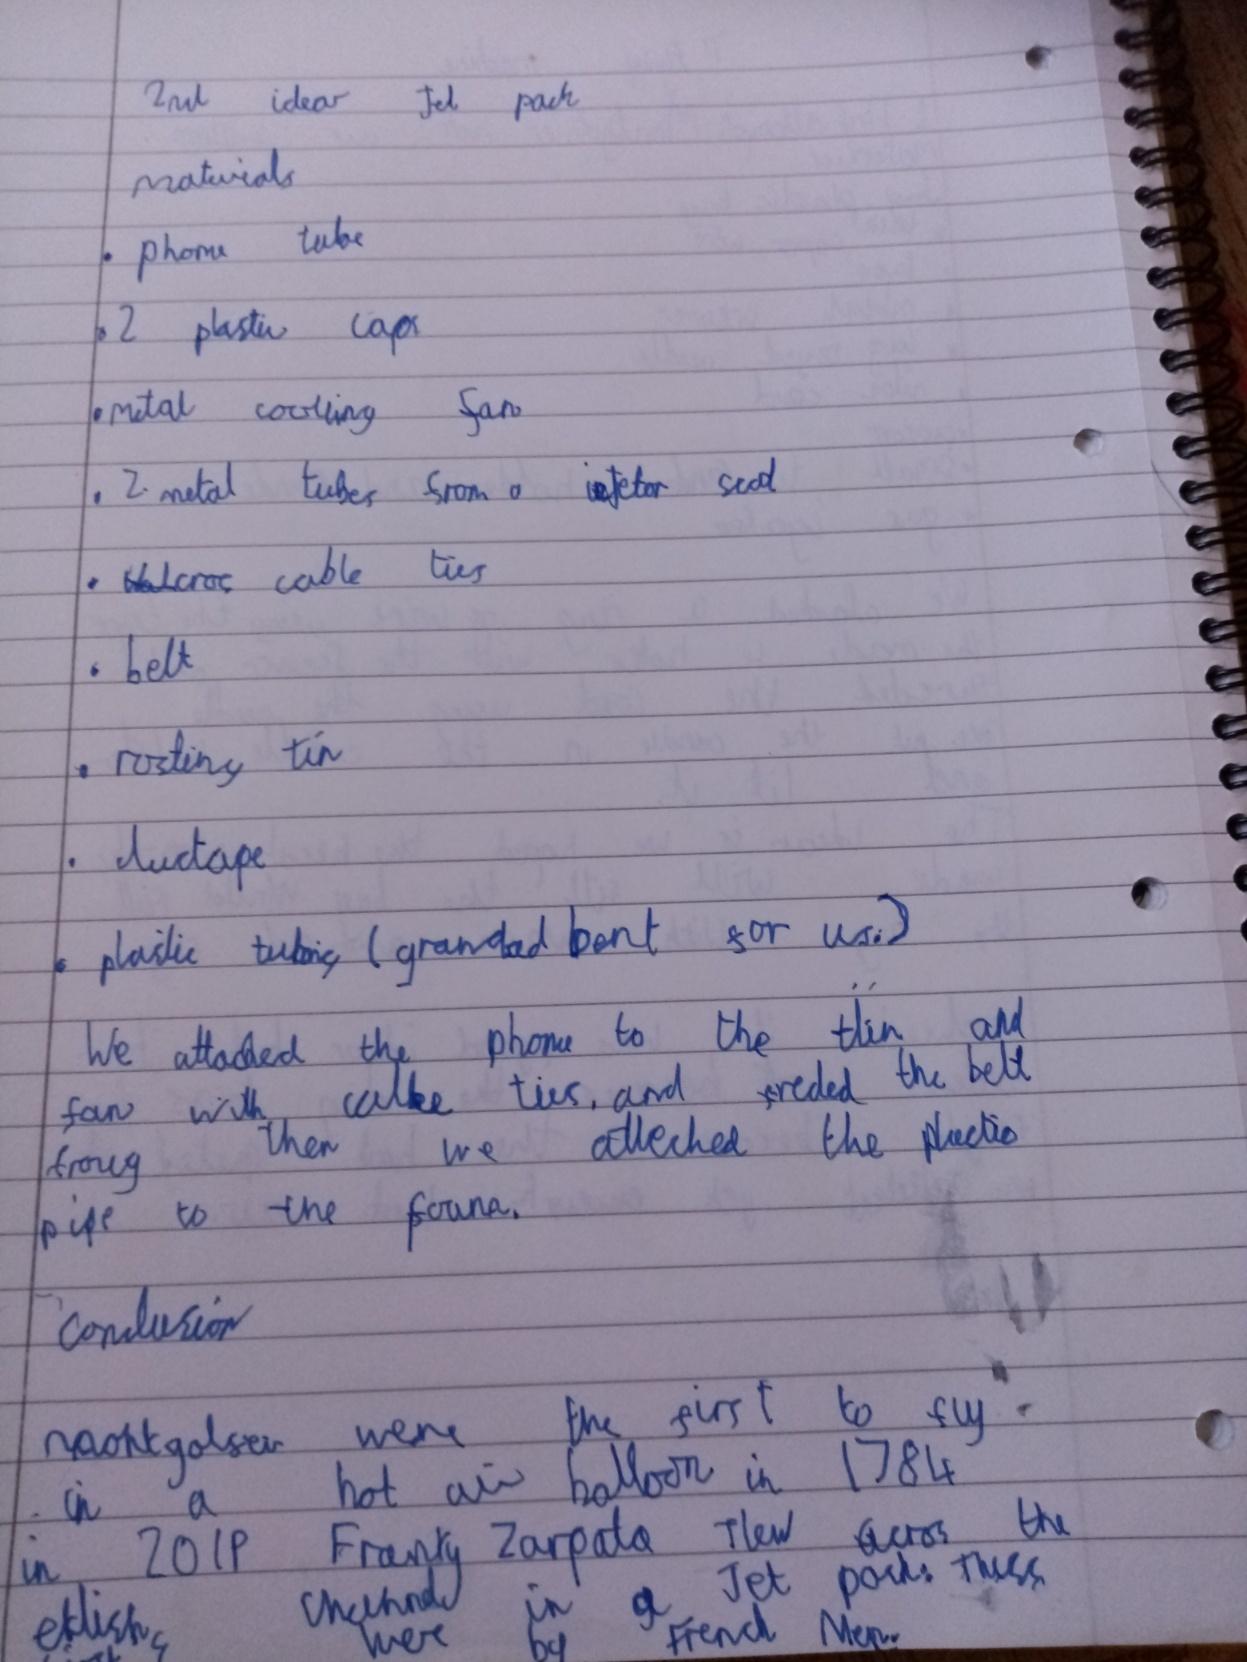 2nd idear Jet pack
materials
• phome tube
• 2 plastic caps
• metal coolling fan
• 2 metal tubes from a injetor seat
• cable ties
• belt
• rosting tin
• ductape
• plastic tubing (grandad bent for us.)
We attached the phome to the tin and
fan with cable ties. and freded the belt
froug then we atteched the plastic
pipe to the
Conclusion
were the first to fly
in a hot air balloon in 1784
in 2019 Franky Zarpata flew acros the
in a Jet pack. Thess
were by French Men.